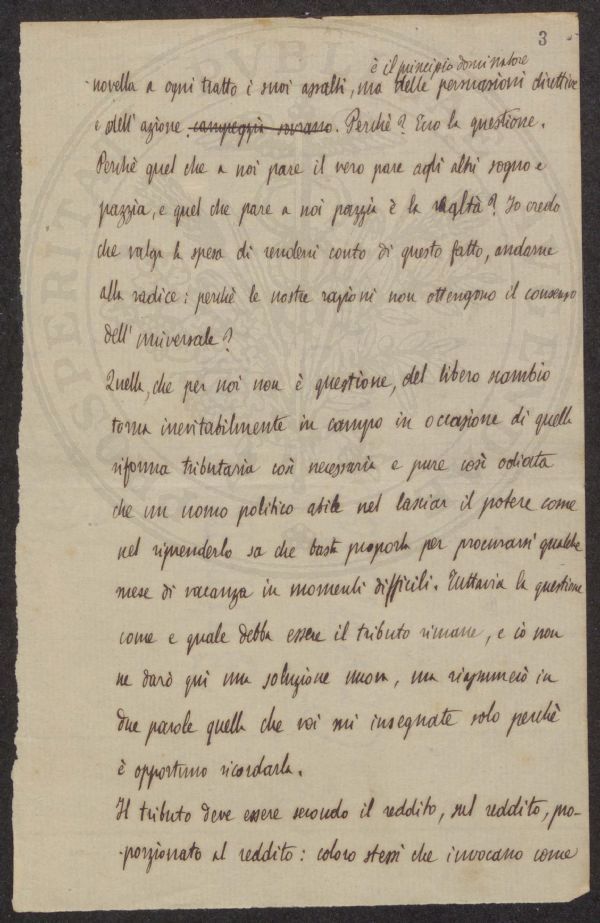 3
è il principio dominatore
novella a ogni tratto i suoi assalti, ma delle persuasioni direttive
e dell' azione campeggia sovrano. Perchè? Ecco la questione.
Perchè quel che a noi pare il vero pare agli altri sogno e
pazzia, e quel che pare a noi pazzia è la realtà? Io credo
che valga la spesa di rendersi conto di questo fatto, andarne
alla radice: perchè le nostre ragioni non ottengono il consenso
dell' universale?
Quella, che per noi non è questione, del libero scambio
torna inevitabilmente in campo in occasione di quella
riforma tributaria così necessaria e pure così odiata
che un uomo politico abile nel lasciar il potere come
nel riprenderlo sa che basta proporla per procurarsi qualche
mese di vacanza in momenti difficili. Tuttavia la questione
come e quale debba essere il tributo rimane, e io non
ne darò qui una soluzione nuova, ma riassumerò in
due parole quella che voi mi insegnate solo perchè
è opportuno ricordarla.
Il tributo deve essere secondo il reddito, sul reddito, pro-
-porzionato al reddito: coloro stessi che invocano come